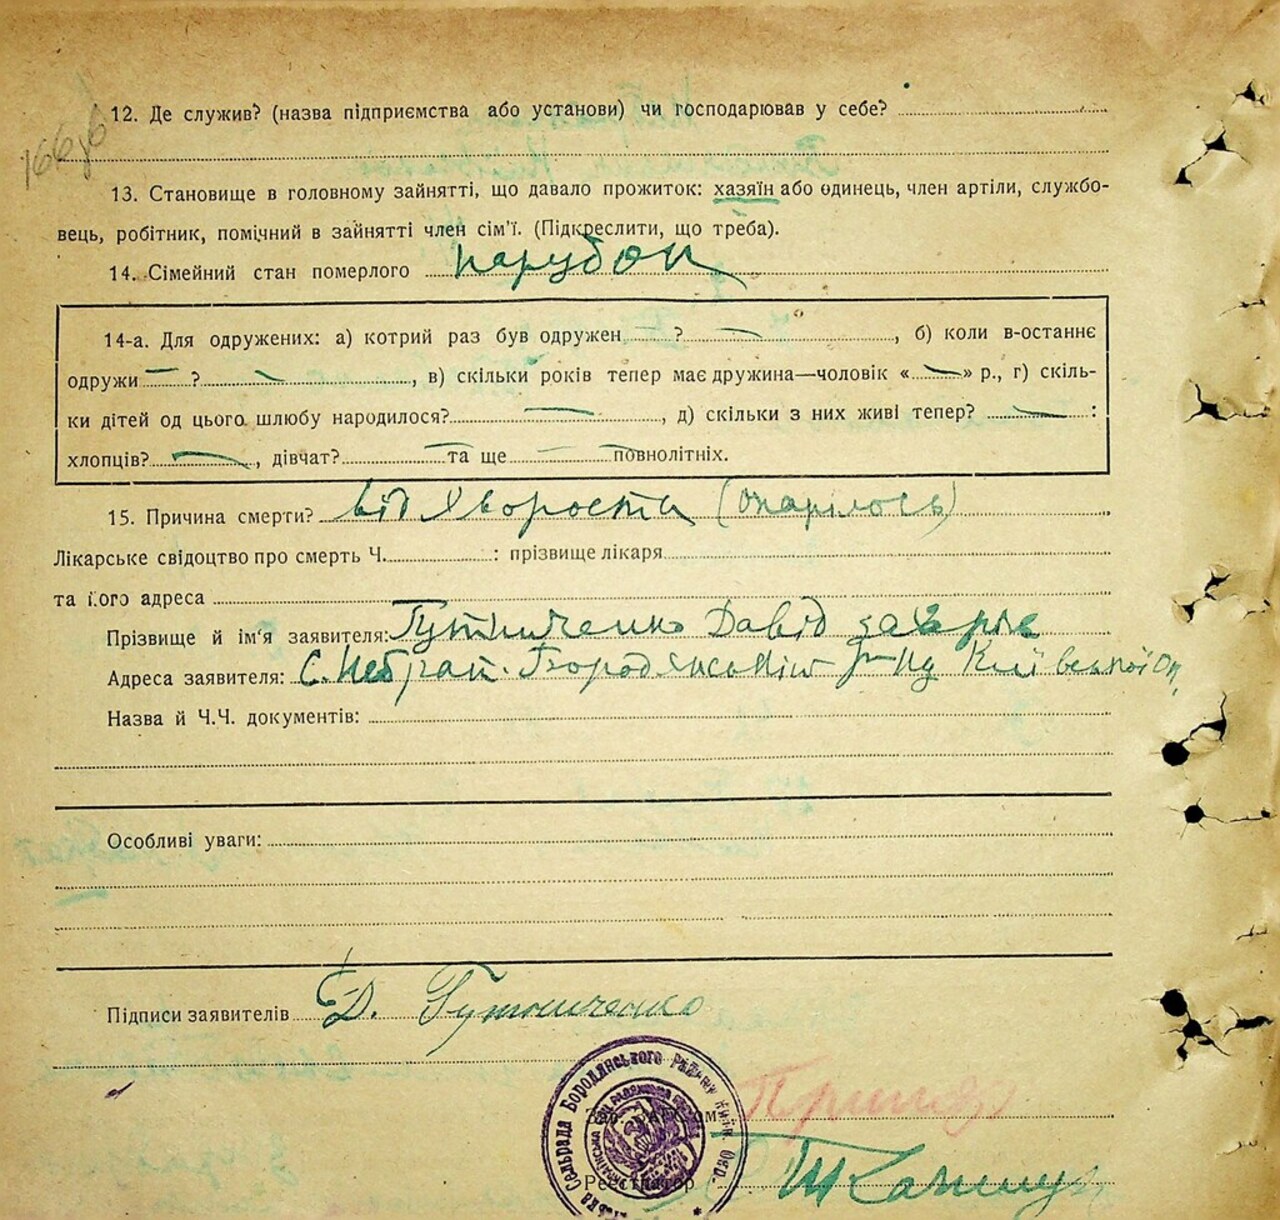 166зв
12. Де служив? (назва підприємства або установи) чи господарював у себе?
13. Становище в головному зайнятті, що давало прожиток: хазяїн або одинець, член артіли, службо-
вець, робітник, помічний в зайнятті член сім'ї. (Підкреслити, що треба).
14. Сімейний стан померлого парубок
14-а. Для одружених: а) котрий раз був одружен — ? —, б) коли в-останнє
одружи — ? —, в) скільки років тепер має дружина—чоловік «—» р., г) скіль-
ки дітей од цього шлюбу народилося? —, д) скільки з них живі тепер? — :
хлопців? —, дівчат? — та ще — повнолітніх.
15. Причина смерти? від хворости (опарілось)
Лікарське свідоцтво про смерть Ч. : прізвище лікаря
та його адреса
Прізвище й ім'я заявителя: Гутниченко Давід
Адреса заявителя: С. Небрат. Бородянський р-ну Київської Ок,
Назва й Ч.Ч. документів:
Особливі уваги:
Підписи заявителів Д. Гутниченко
Сельрада Бородянського району Київ. Окр.
Реєстратор